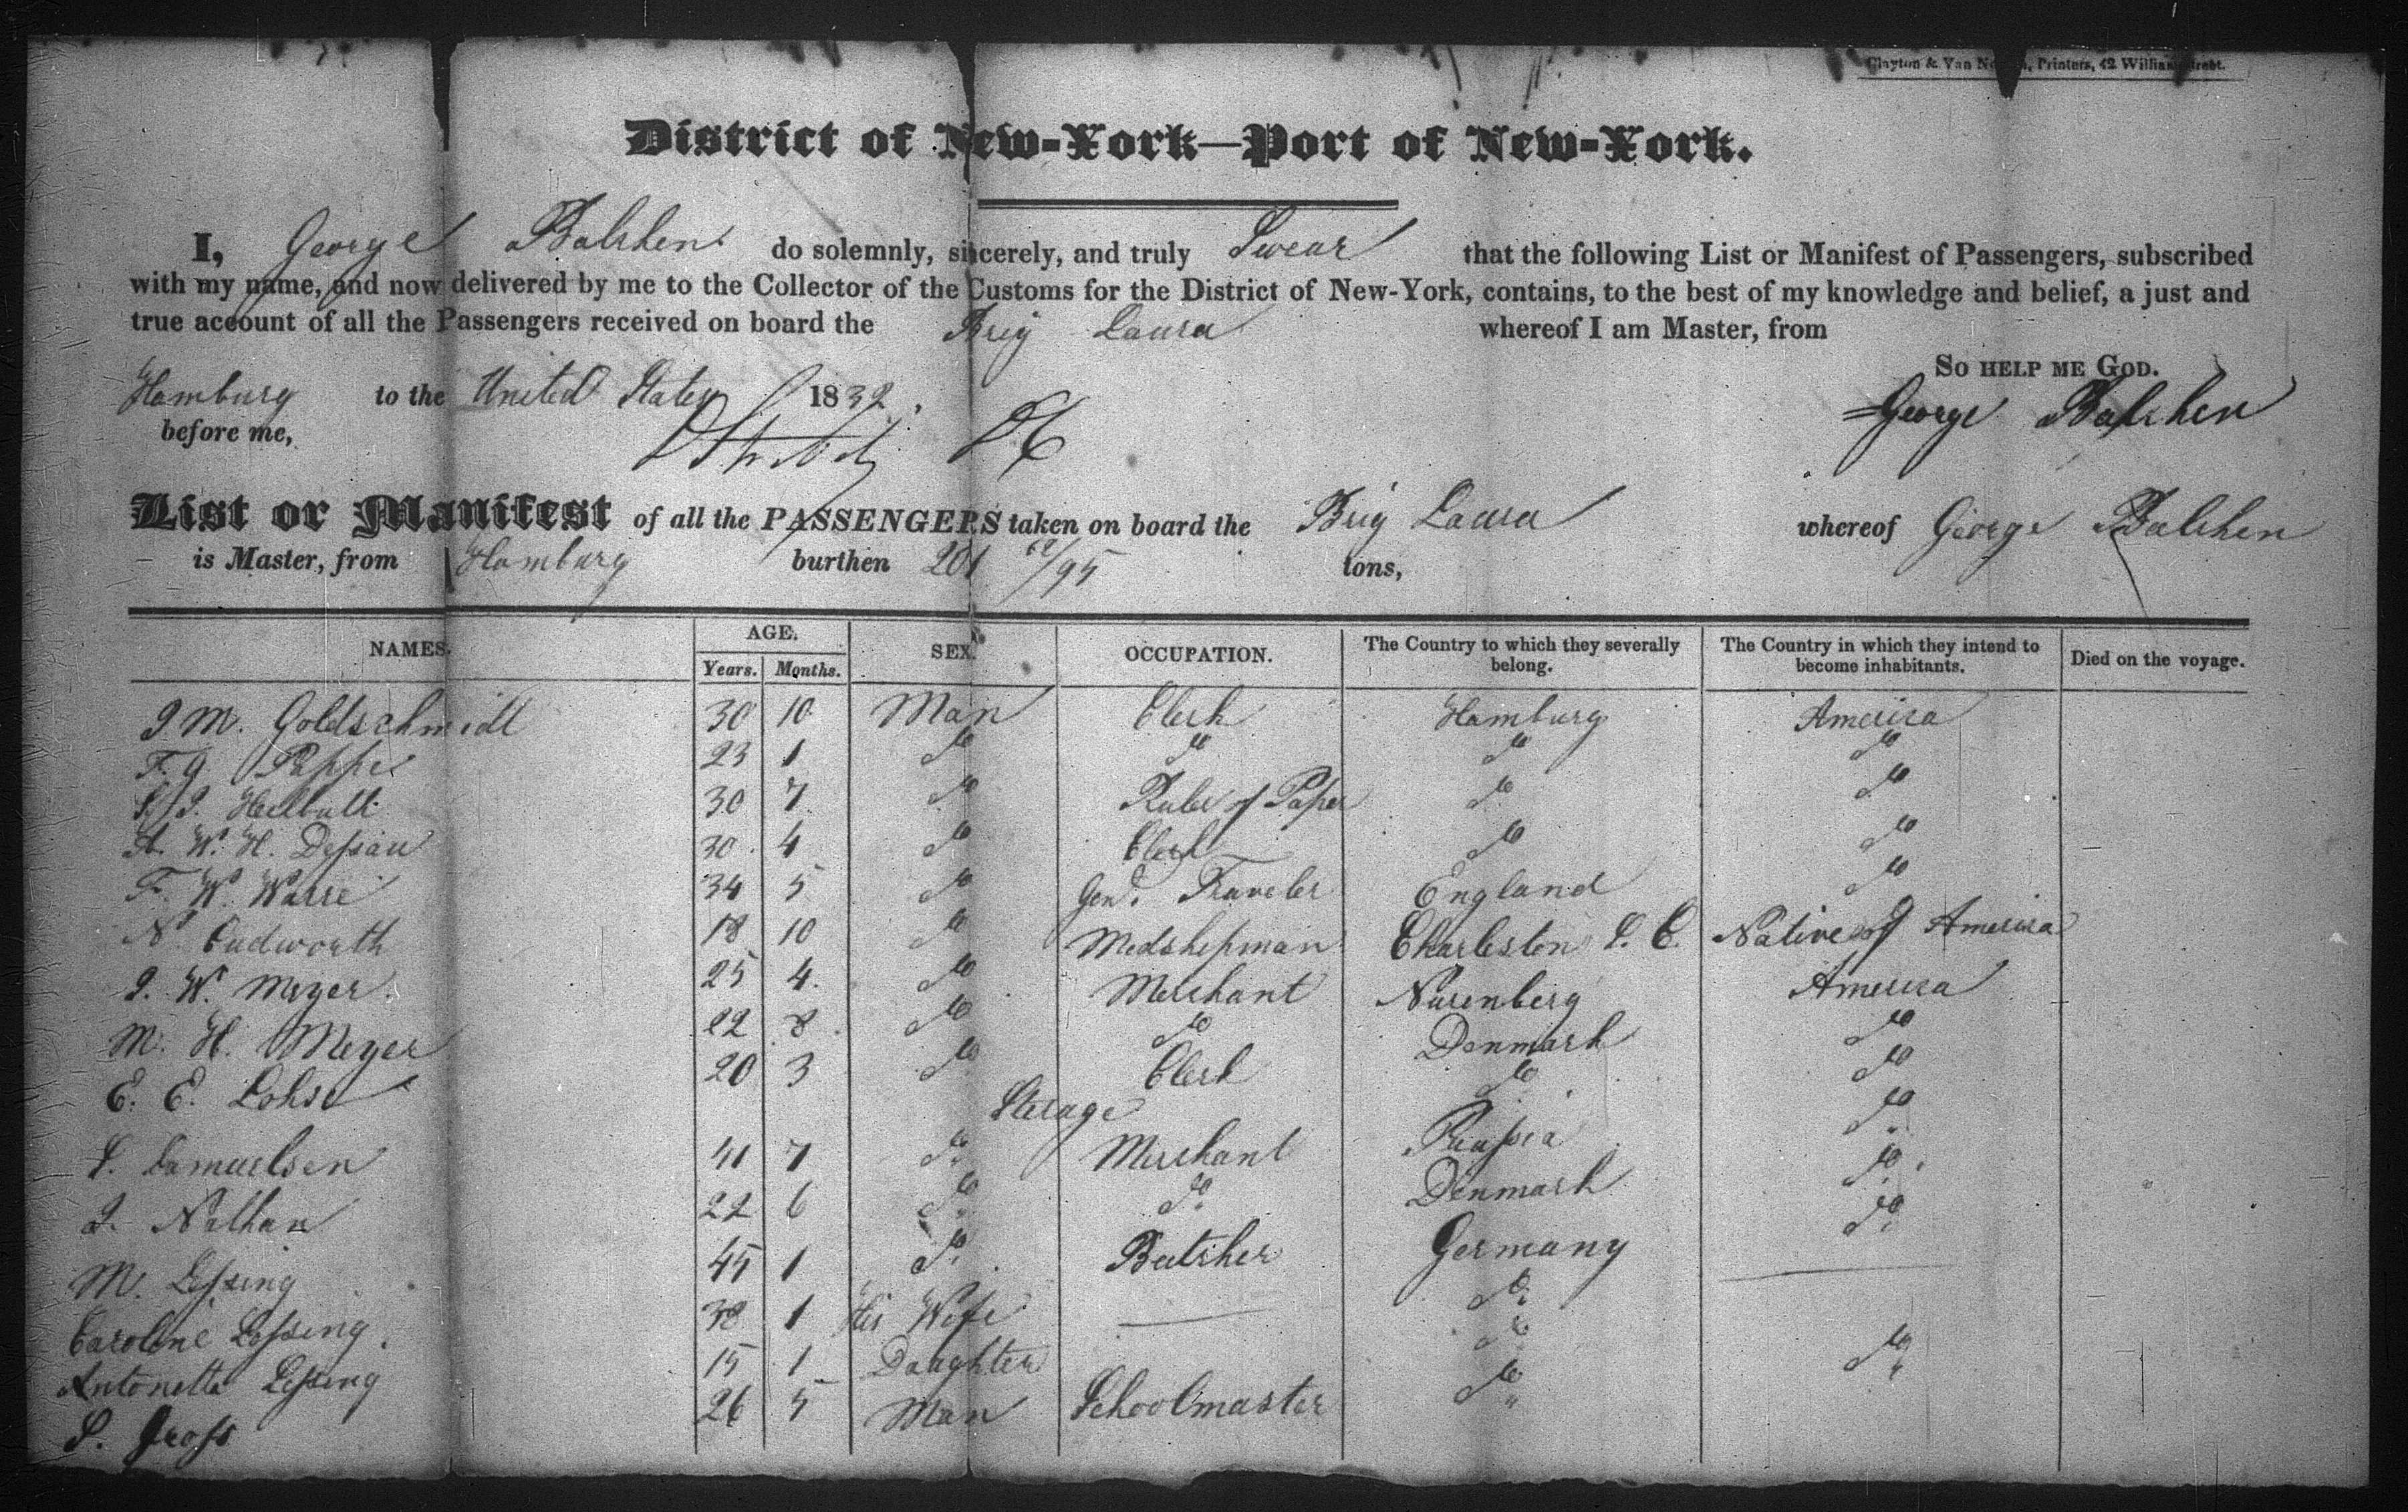 Clayton & Van N, Printers, 42 William Street.
District of New-York—Port of New-York.
I, George Balchen do solemnly, sincerely, and truly Swear that the following List or Manifest of Passengers, subscribed
with my name, and now delivered by me to the Collector of the Customs for the District of New-York, contains, to the best of my knowledge and belief, a just and
true account of all the Passengers received on board the Brig Laura whereof I am Master, from
Hamburg to the United States 1832. SO HELP ME GOD.
before me, George Balchen
List or Manifest of all the PASSENGERS taken on board the Brig Laura whereof George Balchen
is Master, from Hamburg burthen 201 /95 tons,
NAMES. AGE. Years. Months. SEX. OCCUPATION. The Country to which they severally belong. The Country in which they intend to become inhabitants. Died on the voyage.
J M. Goldschmidt 30 10 Man Clerk Hamburg America
F. G. Pappe 23 1 Do Do Do Do
J. Heilbutt 30 7 Do Ruler of Paper Do Do
A. W. H. Dessau 30 4 Do Clerk Do Do
F. W. Warre 34 5 Do Gen. Traveler England Do
N. Cudworth 18 10 Do Medshipman Charleston S. C. Native of America
J. W. Meyer 25 4 Do Merchant Nurenberg America
M. H. Meyer 22 8 Do Do Denmark Do
E. E. Lohse 20 3 Do Clerk Do Do
Sterage
S. Samuelsen 41 7 Do Merchant Russia Do
J. Nathan 22 6 Do Do Denmark Do
M. Lessing 45 1 Do Butcher Germany Do
Caroline Lessing 38 1 His Wife — Do —
Antonette Lessing 15 1 Daughter Do
S. Gross 26 5 Man Schoolmaster Do Do